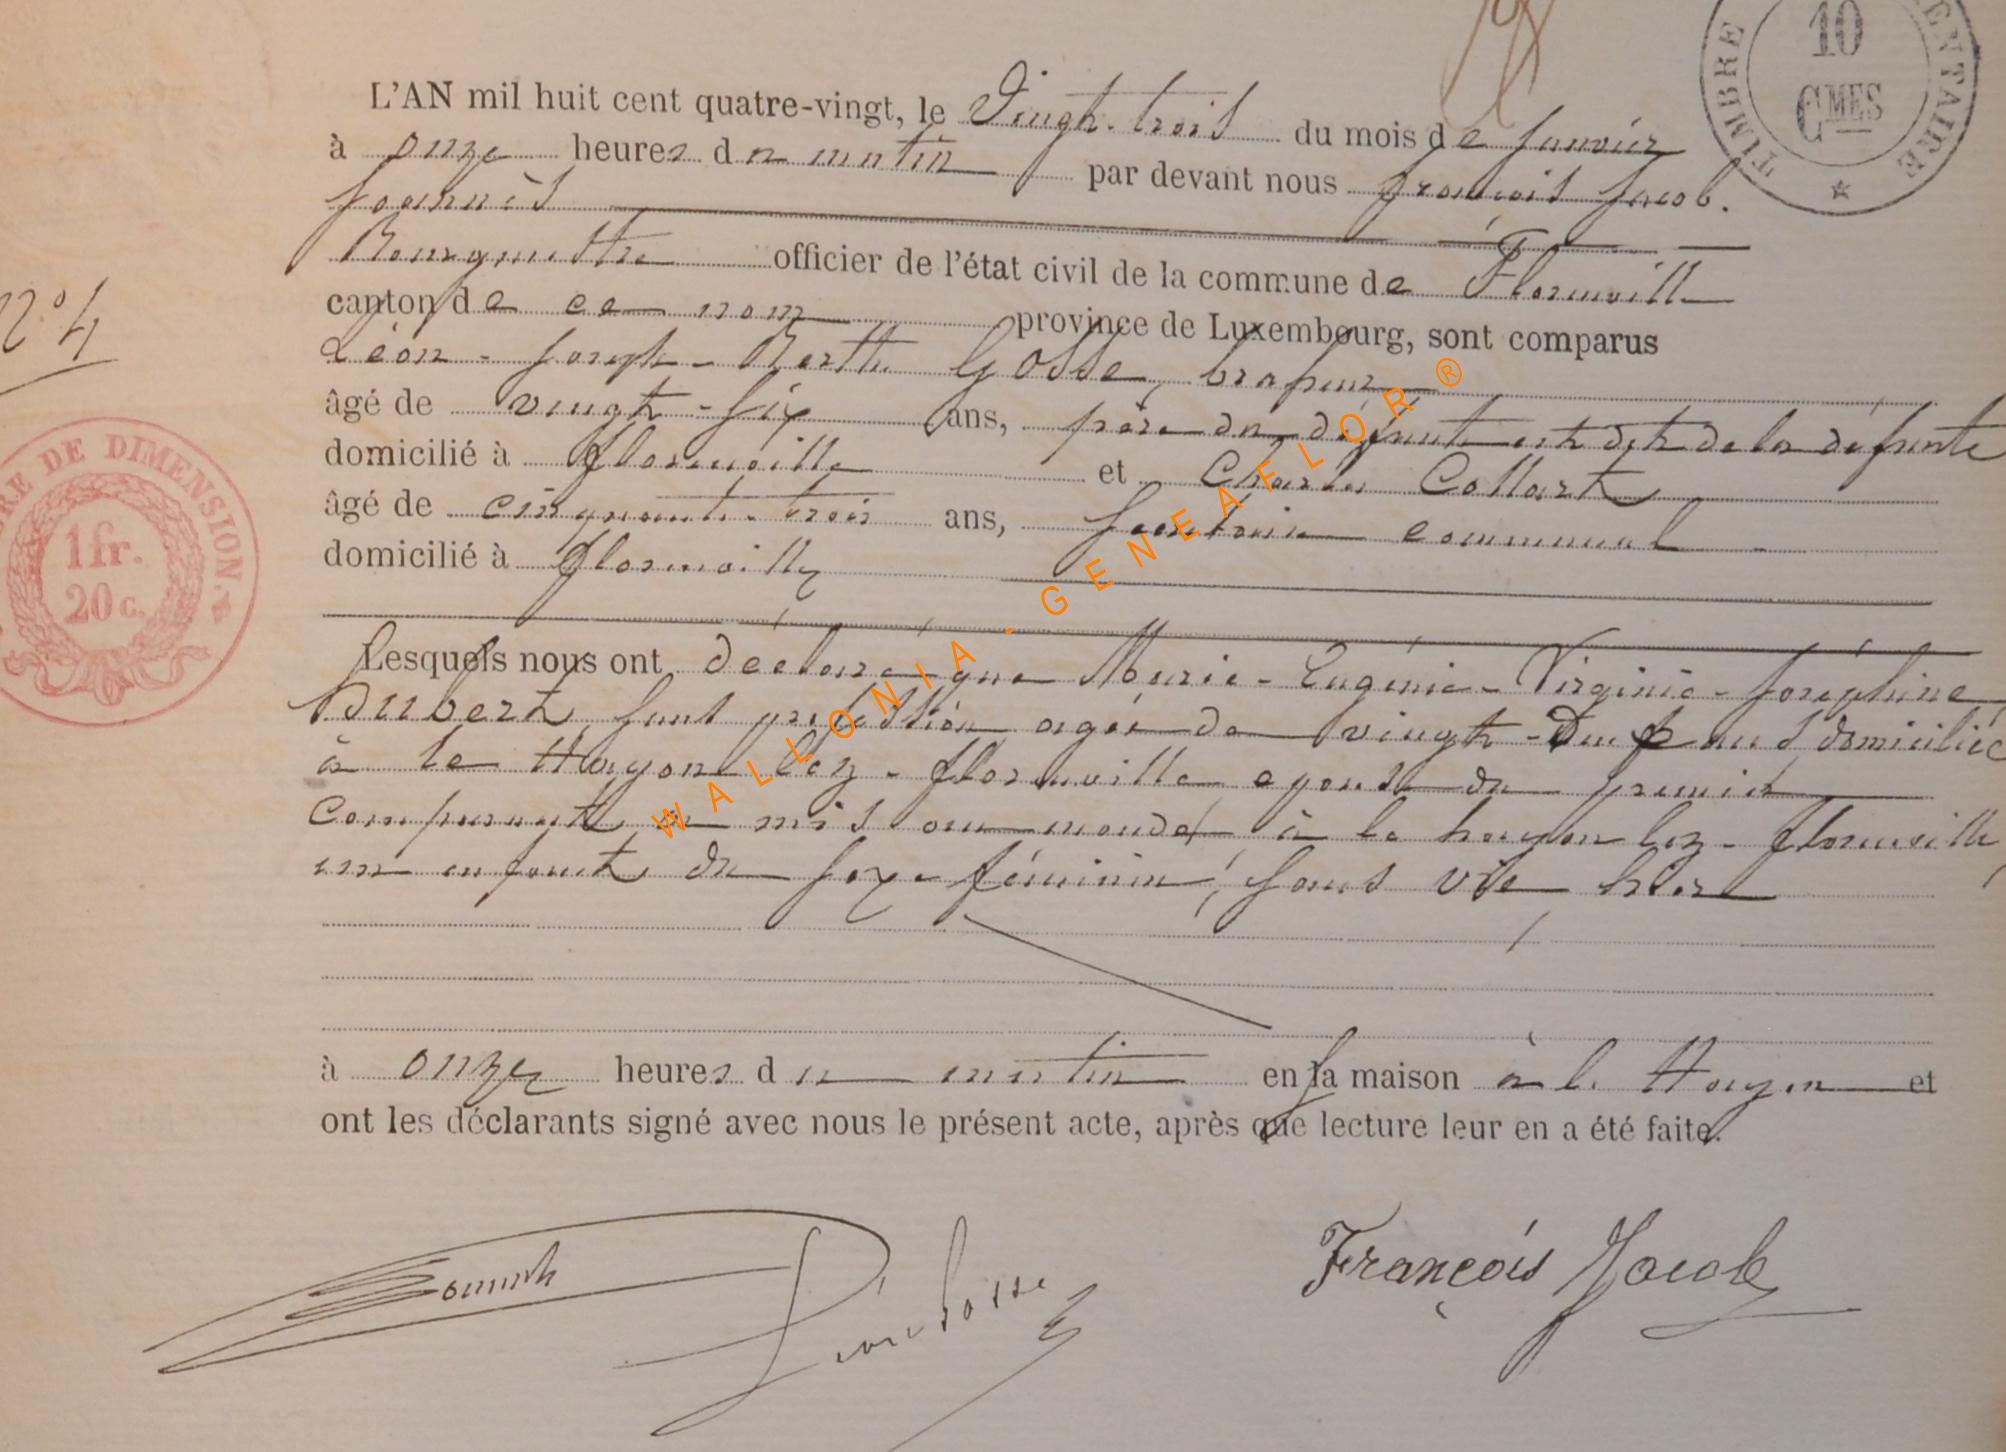 10
CMES
TIMBRE
ENTAIRE
L'AN mil huit cent quatre-vingt, le Vingt-trois du mois de Janvier
à onze heures du matin par devant nous françois Jacob.
Joannès
Bourgmestre officier de l'état civil de la commune de Florenville
canton de ce nom province de Luxembourg, sont comparus
Léon-Joseph-Berthe Gosse, brasseur
âgé de vingt-six ans, père du défunt est dit de la défunte
domicilié à florenville et Charles Collart
âgé de cinquante-trois ans, secrétaire communal
domicilié à florenville
N° 4
RE DE DIMENSION.
1 fr.
20 c.
Lesquels nous ont déclaré que Marie-Eugénie-Virginie-Joséphine
Hubert sans profession agée de vingt-deux ans domiciliée
à le Hayon lez-florenville epouse du premier
comparant, a mis au monde à le hayon lez-florenville,
un enfant du sexe féminin, sans vie hier
à onze heures du matin en sa maison à le Hayon et
ont les déclarants signé avec nous le présent acte, après que lecture leur en a été faite.
Léon Gosse
François Jacob
WALLONIA.GENEAFLOR®